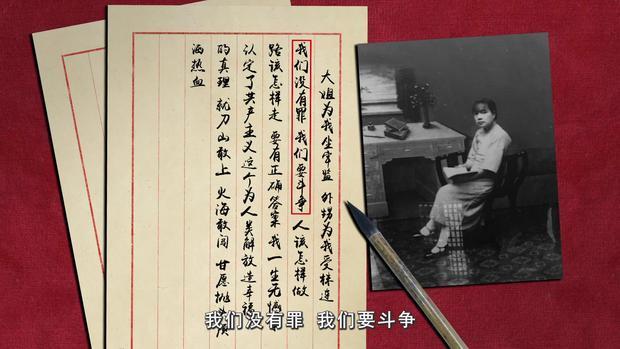 大姐为我坐牢监 外甥为我受株连
我们没有罪 我们要斗争 人该怎样做
路该怎样走 要有正确答案 我一生无
认定了共产主义这个为人类解放造幸福
的真理 就刀山敢上 火海敢闯 甘愿抛头颅
洒热血
我们没有罪 我们要斗争